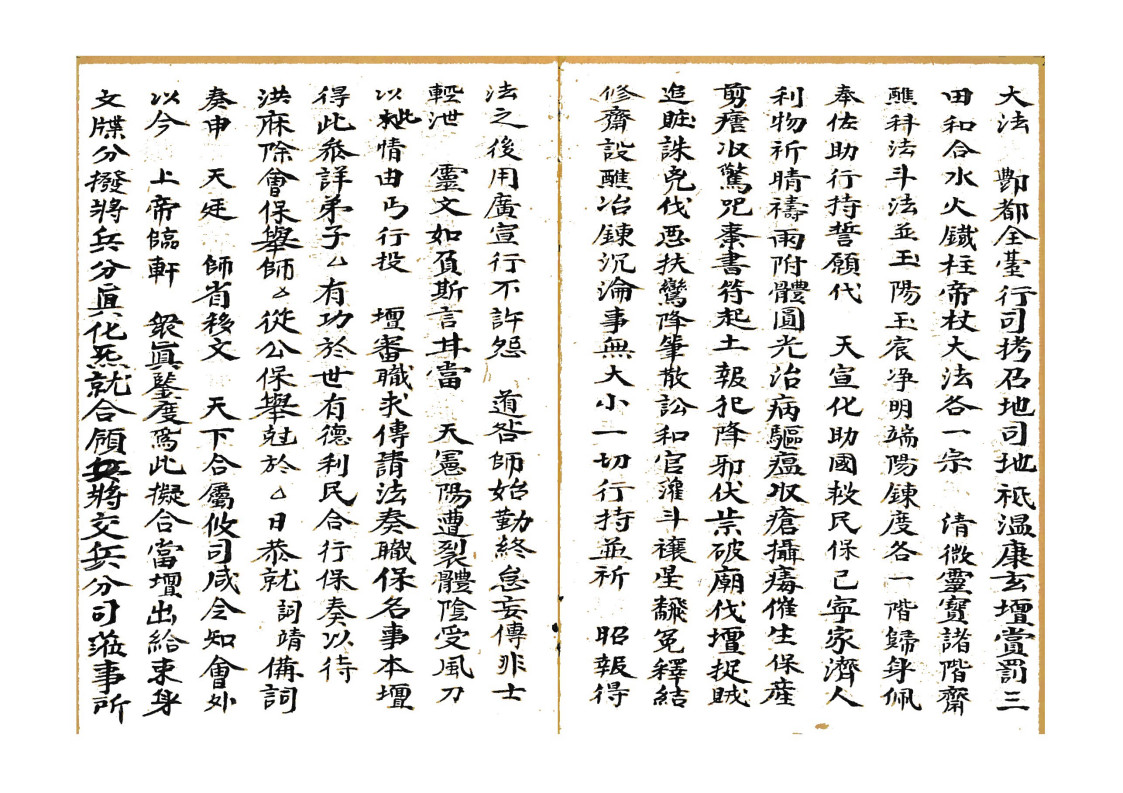 大法　酆都全臺行司拷召地司地祇溫康玄壇賞罰三
田和合水火鐵柱帝杖大法各一宗　清微靈寶諸階齋
醮科法斗法並玉陽玉宸净明端陽鍊度各一階歸身佩
奉佐助行持誓願代　天宣化助國救民保己寧家濟人
利物祈晴禱雨附體圓光治病驅瘟収瘡攝毒催生保産
剪㾾収驚咒棗書符起土報犯降邪伏祟破廟伐壇捉賊
追賍誅兇伐惡扶鸞降筆散訟和官灌斗禳星飜冤釋結
修齋設醮冶鍊沉淪事無大小一切行持並祈　昭報得
法之後用廣宣行不許怨　道咎師始勤終怠妄傳非士
輕泄　靈文如負斯言甘當　天憲陽遭裂體陰受風刀
以此情由丐行投　壇審職求傳請法奏職保名事本壇
得此叅詳弟子厶有功於世有德利民合行保奏以待
洪庥除會保舉師厶從公保舉尅於　厶日恭就詞靖備詞
奏申　天廷　師省移文　天下合屬攸司咸令知會外
以今　上帝臨軒　衆眞鑒度爲此擬合當壇出給束身
文牒分撥將兵分眞化炁就合頒兵將交兵分司蒞事所